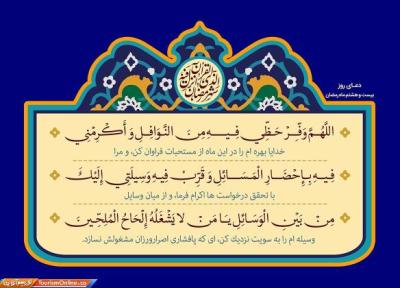 شهر رمضان الذی انزل فیه القرآن
دعـای روز
بیست و هشتم ماه رمضان
اللَّهُمَّ وَفِّرْ حَظِّي فِيهِ مِنَ النَّوَافِلِ وَ أَكْرِمْنِي
خدایا بهره ام را در این ماه از مستحبات فراوان کن، و مرا
فِيهِ بِإِحْضَارِ الْمَسَائِلِ وَ قَرِّبْ فِيهِ وَسِيلَتِي إِلَيْكَ
با تحقق درخواست ها اکرام فرما، و از میان وسایل
مِنْ بَيْنِ الْوَسَائِلِ يَا مَنْ لا يَشْغَلُهُ إِلْحَاحُ الْمُلِحِّينَ
وسیله ام را به سویت نزدیک کن، ای که پافشاری اصرارورزان مشغولش نسازد.
TourismOnline.co